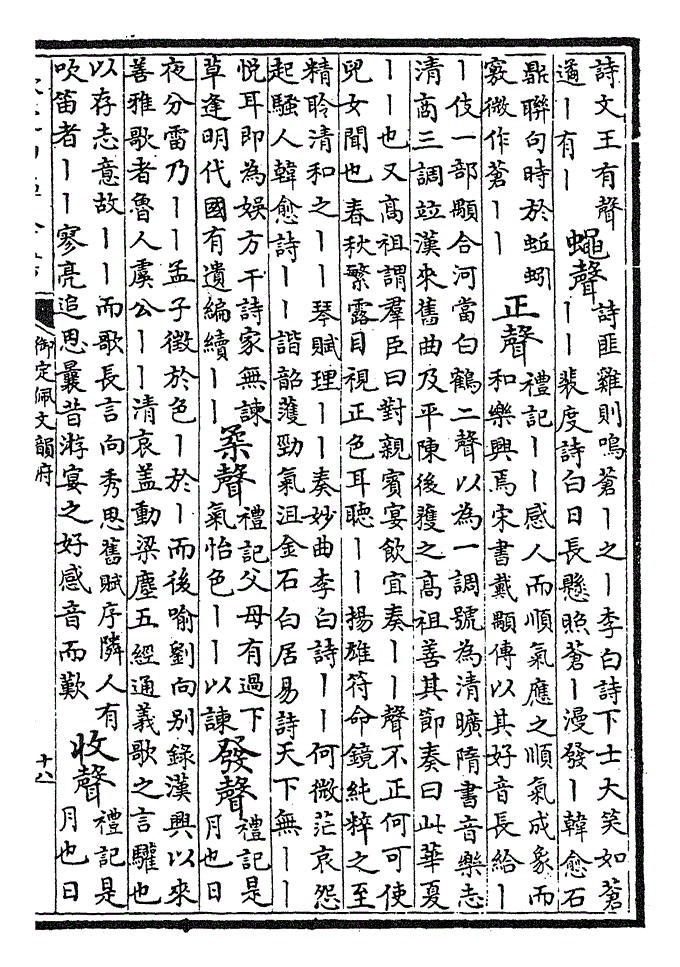 詩文王有聲
遹丨有丨
蠅聲
詩匪雞則鳴蒼丨之丨李白詩下士大笑如蒼
丨丨裴度詩白日長懸照蒼丨漫發丨韓愈石
鼎聯句時於蚯蚓
竅微作蒼丨丨
正聲
禮記丨丨感人而順氣應之順氣成象而
和樂興焉宋書戴顒傳以其好音長給丨
丨伎一部顒合河當白鶴二聲以為一調號為清曠隋書音樂志
清商三調竝漢來舊曲及平陳後獲之高祖善其節奏曰此華夏
丨丨也又高祖謂羣臣曰對親賓宴飲宜奏丨丨聲不正何可使
兒女聞也春秋繁露目視正色耳聽丨丨揚雄符命鏡純粹之至
精聆清和之丨丨琴賦理丨丨奏妙曲李白詩丨丨何微茫哀怨
起騷人韓愈詩丨丨諧韶濩勁氣沮金石白居易詩天下無丨丨
悅耳即為娛方干詩家無諫
草逢明代國有遺編續丨丨
柔聲
禮記父母有過下
氣怡色丨丨以諫
發聲
禮記是
月也日
夜分雷乃丨丨孟子徵於色丨於丨而後喻劉向別錄漢興以來
善雅歌者魯人虞公丨丨清哀蓋動梁塵五經通義歌之言驩也
以存志意故丨丨而歌長言向秀思舊賦序隣人有
吹笛者丨丨寥亮追思曩昔游宴之好感音而歎
收聲
禮記是
月也日
御定佩文韻府
十八